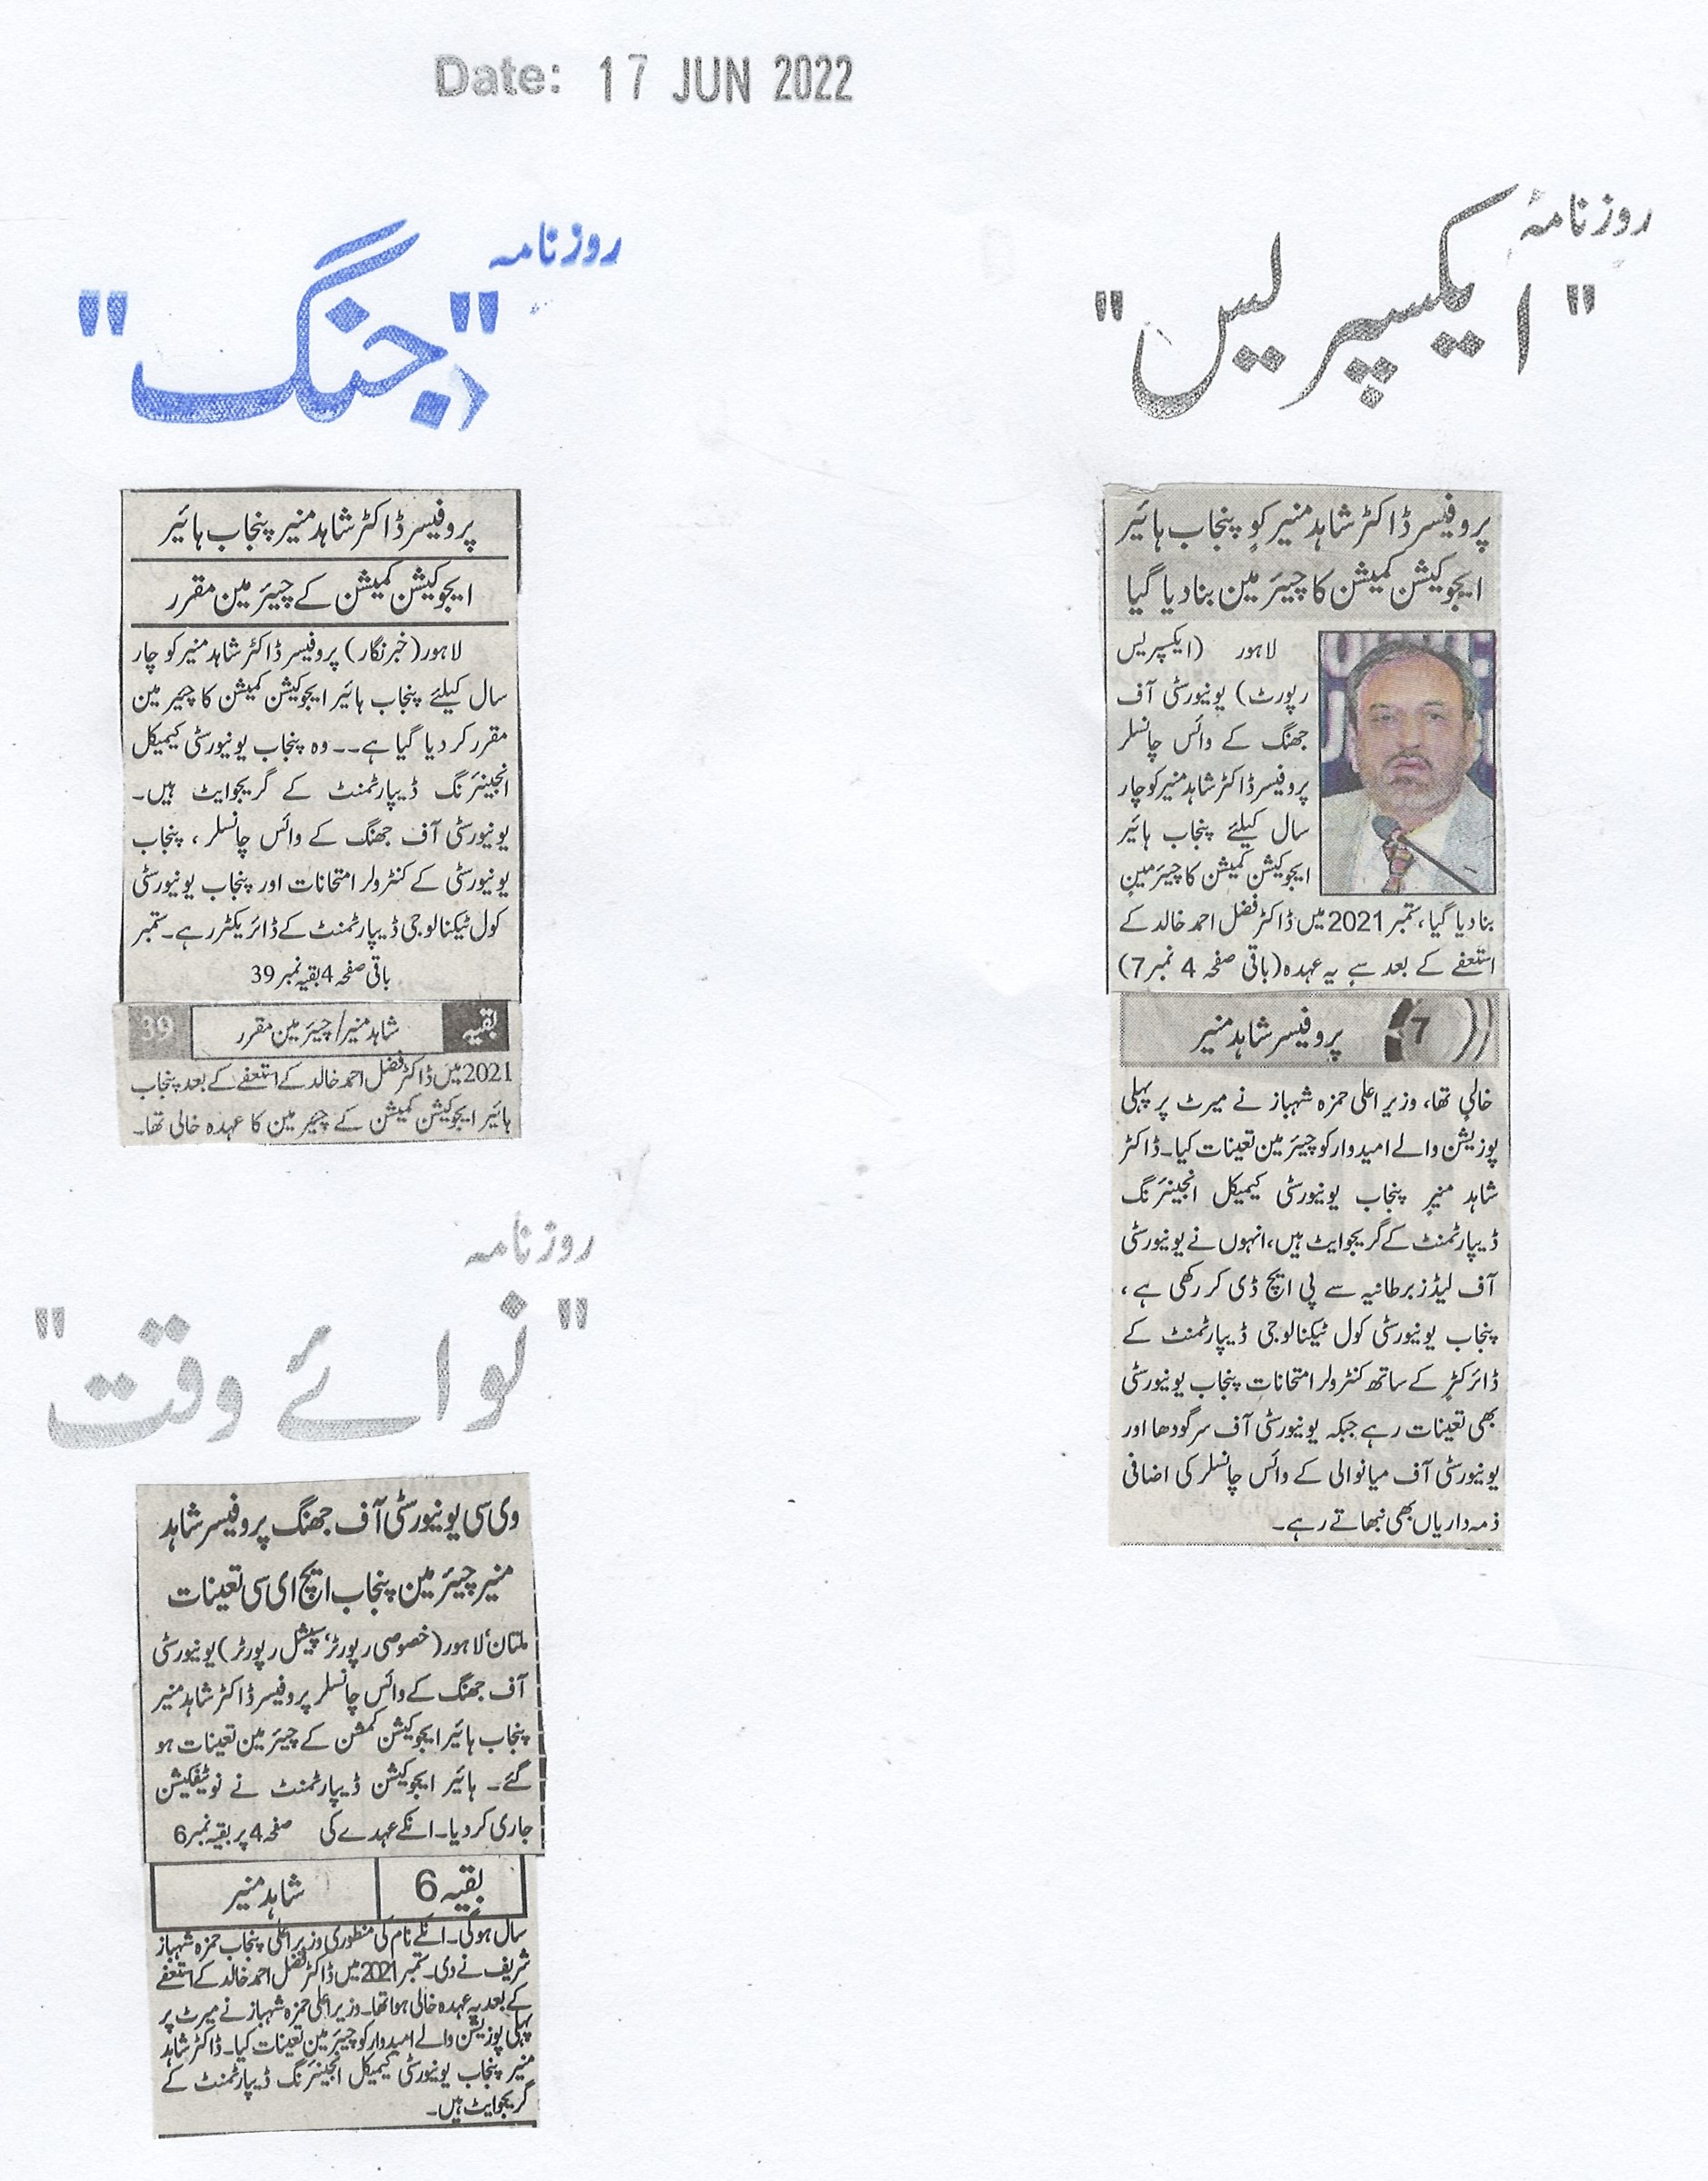 Date: 17 JUN 2022
روزنامہ
"ایکسپریس"
پروفیسر ڈاکٹر شاہد منیر کو پنجاب ہائیر
ایجوکیشن کمیشن کا چیئرمین بنا دیا گیا
لاہور (ایکسپریس
رپورٹ) یونیورسٹی آف
جھنگ کے وائس چانسلر
پروفیسر ڈاکٹر شاہد منیر کو چار
سال کیلئے پنجاب ہائیر
ایجوکیشن کمیشن کا چیئرمین
بنا دیا گیا، ستمبر 2021 میں ڈاکٹر فضل احمد خالد کے
استعفے کے بعد سے یہ عہدہ (باقی صفحہ 4 نمبر 7)
7 پروفیسر شاہد منیر
خالی تھا، وزیر اعلی حمزہ شہباز نے میرٹ پر پہلی
پوزیشن والے امیدوار کو چیئرمین تعینات کیا۔ ڈاکٹر
شاہد منیر پنجاب یونیورسٹی کیمیکل انجینئرنگ
ڈیپارٹمنٹ کے گریجوایٹ ہیں، انہوں نے یونیورسٹی
آف لیڈز برطانیہ سے پی ایچ ڈی کر رکھی ہے،
پنجاب یونیورسٹی کول ٹیکنالوجی ڈیپارٹمنٹ کے
ڈائرکٹر کے ساتھ کنٹرولر امتحانات پنجاب یونیورسٹی
بھی تعینات رہے جبکہ یونیورسٹی آف سرگودھا اور
یونیورسٹی آف میانوالی کے وائس چانسلر کی اضافی
ذمہ داریاں بھی نبھاتے رہے۔
روزنامہ
"جنگ"
پروفیسر ڈاکٹر شاہد منیر پنجاب ہائیر
ایجوکیشن کمیشن کے چیئرمین مقرر
لاہور (خبرنگار) پروفیسر ڈاکٹر شاہد منیر کو چار
سال کیلئے پنجاب ہائیر ایجوکیشن کمیشن کا چیئرمین
مقرر کر دیا گیا ہے۔۔ وہ پنجاب یونیورسٹی کیمیکل
انجینئرنگ ڈیپارٹمنٹ کے گریجوایٹ ہیں۔
یونیورسٹی آف جھنگ کے وائس چانسلر، پنجاب
یونیورسٹی کے کنٹرولر امتحانات اور پنجاب یونیورسٹی
کول ٹیکنالوجی ڈیپارٹمنٹ کے ڈائریکٹر رہے۔ ستمبر
باقی صفحہ 4 بقیہ نمبر 39
بقیہ شاہد منیر/چیئرمین مقرر 39
2021 میں ڈاکٹر فضل احمد خالد کے استعفے کے بعد پنجاب
ہائیر ایجوکیشن کمیشن کے چیئرمین کا عہدہ خالی تھا۔
روزنامہ
"نوائے وقت"
وی سی یونیورسٹی آف جھنگ پروفیسر شاہد
منیر چیئرمین پنجاب ایچ ای سی تعینات
ملتان' لاہور (خصوصی رپورٹر' سپیشل رپورٹر) یونیورسٹی
آف جھنگ کے وائس چانسلر پروفیسر ڈاکٹر شاہد منیر
پنجاب ہائیر ایجوکیشن کمشن کے چیئرمین تعینات ہو
گئے۔ ہائیر ایجوکیشن ڈیپارٹمنٹ نے نوٹیفکیشن
جاری کر دیا۔ انکے عہدے کی صفحہ 4 پر بقیہ نمبر 6
بقیہ 6 شاہد منیر
سال ہوگی۔ انکے نام کی منظوری وزیر اعلی پنجاب حمزہ شہباز
شریف نے دی۔ ستمبر 2021 میں ڈاکٹر فضل احمد خالد کے استعفے
کے بعد یہ عہدہ خالی ہوا تھا۔ وزیر اعلی حمزہ شہباز نے میرٹ پر
پہلی پوزیشن والے امیدوار کو چیئرمین تعینات کیا۔ ڈاکٹر شاہد
منیر پنجاب یونیورسٹی کیمیکل انجینئرنگ ڈیپارٹمنٹ کے
گریجوایٹ ہیں۔